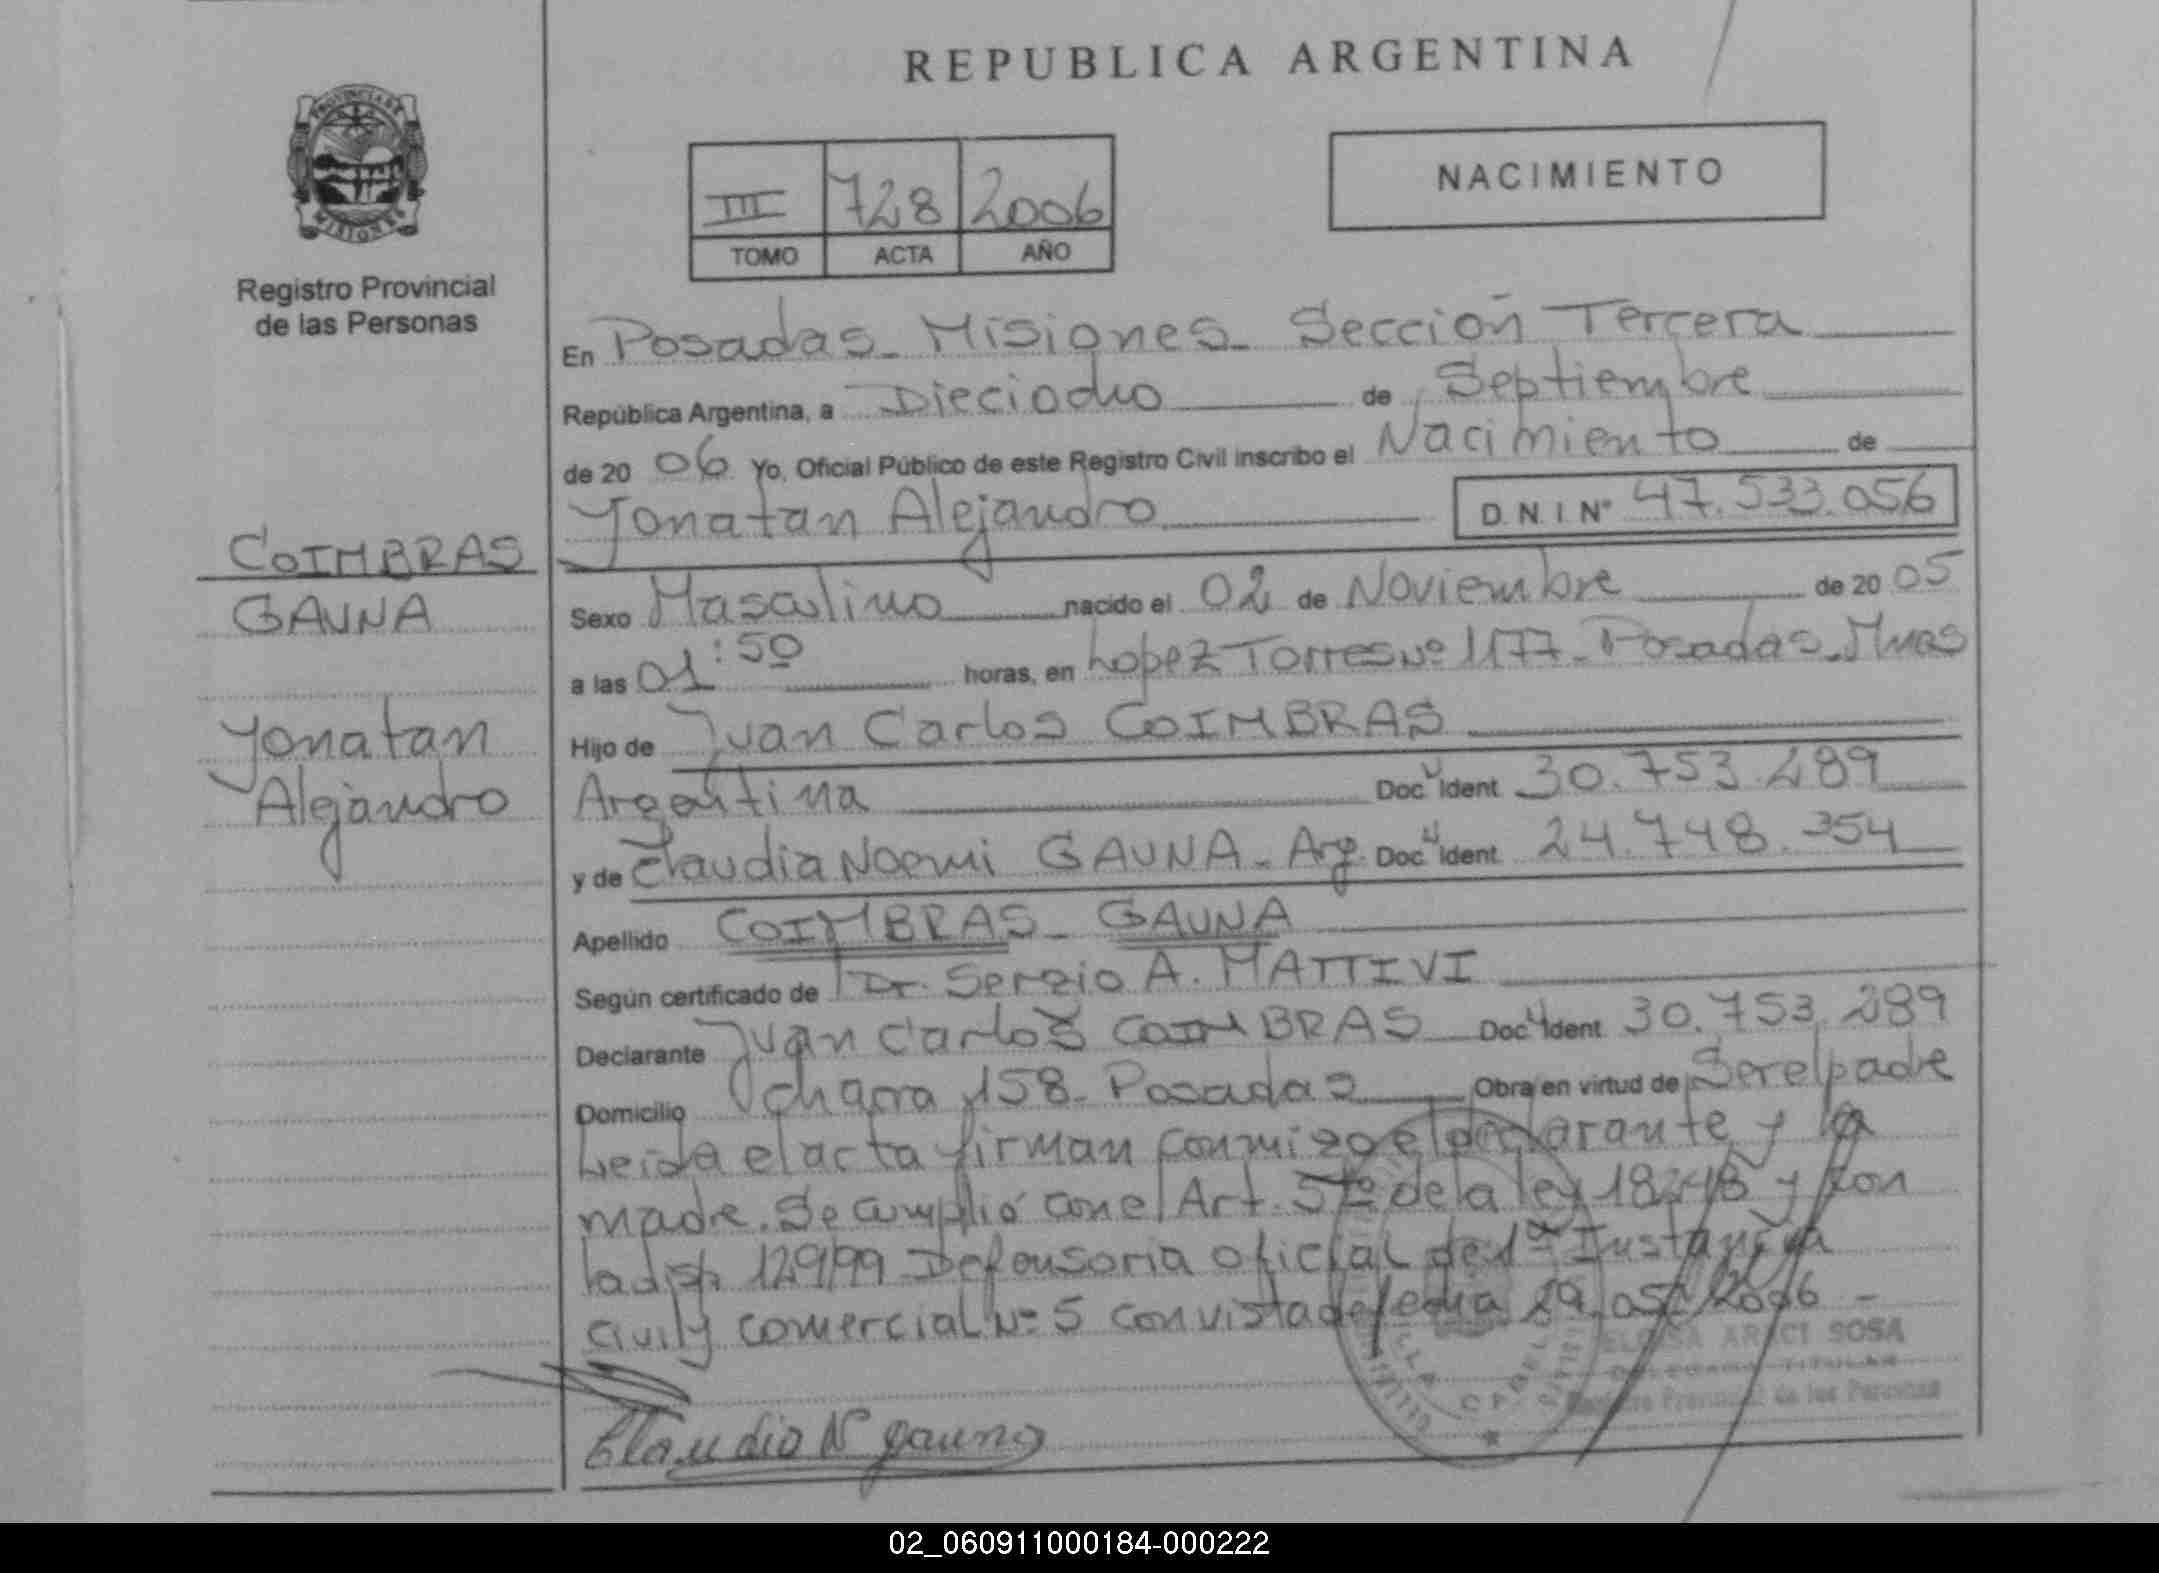 REPUBLICA ARGENTINA
PROVINCIA DE
MISIONES
Registro Provincial
de las Personas
III 728 2006
TOMO ACTA AÑO
NACIMIENTO
En Posadas - Misiones - Sección Tercera
República Argentina, a Dieciocho de Septiembre
de 20 06 Yo, Oficial Público de este Registro Civil inscribo el Nacimiento de
Yonatan Alejandro D.N.I Nº 47.533.056
COIMBRAS
GAUNA
Yonatan
Alejandro
Sexo Masculino nacido el 02 de Noviembre de 20 05
a las 01:50 horas, en Lopez Torres Nº 1177 - Posadas - Mnes
Hijo de Juan Carlos COIMBRAS
Argentina Doc Ident 30.753.289
y de Claudia Noemi GAUNA - Arg. Doc Ident 24.748.354
Apellido COIMBRAS - GAUNA
Según certificado de Dr. Sergio A. MATTIVI
Declarante Juan Carlos COIMBRAS Doc Ident 30.753.289
Domicilio chacra 158 - Posadas Obra en virtud de Ser el padre
Leida el acta firman conmigo el declarante y la
madre. Se cumplió con el Art. 5to de la ley 18248 y con
la disp. 129/99 Defensoria oficial de 1ª Instancia
civil y comercial Nº 5 con vista de fecha 29/05/2006 -
ELOISA ARACI SOSA
DELEGADA TITULAR
Registro Provincial de las Personas
Claudia N gauna
02_060911000184-000222